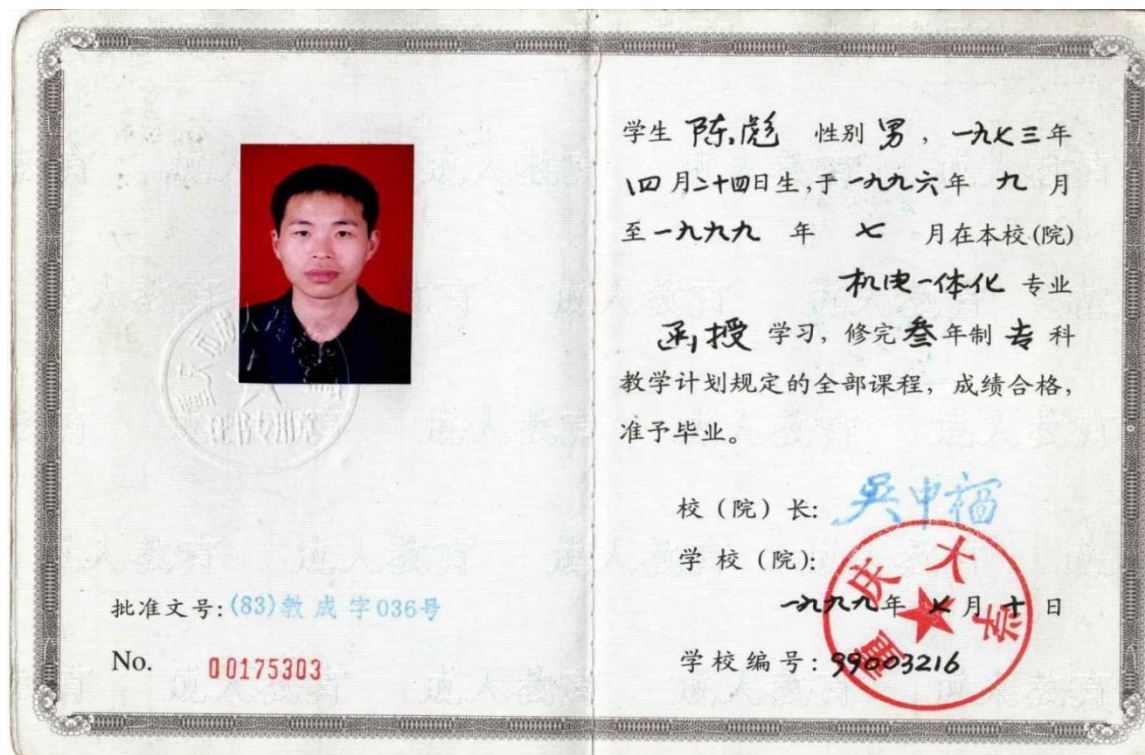 批准文号:(83)教成字036号
No. 00175303
证书专用章
学生 陈彪 性别 男, 一九七三年
四月二十四日生,于一九九六年 九月
至一九九九 年 七 月在本校(院)
机电一体化 专业
函授 学习, 修完叁年制 专 科
教学计划规定的全部课程, 成绩合格,
准予毕业。
校(院)长: 吴中福
学校(院):
重庆大学
一九九九年 七月十日
学校编号: 99003216
成人教育